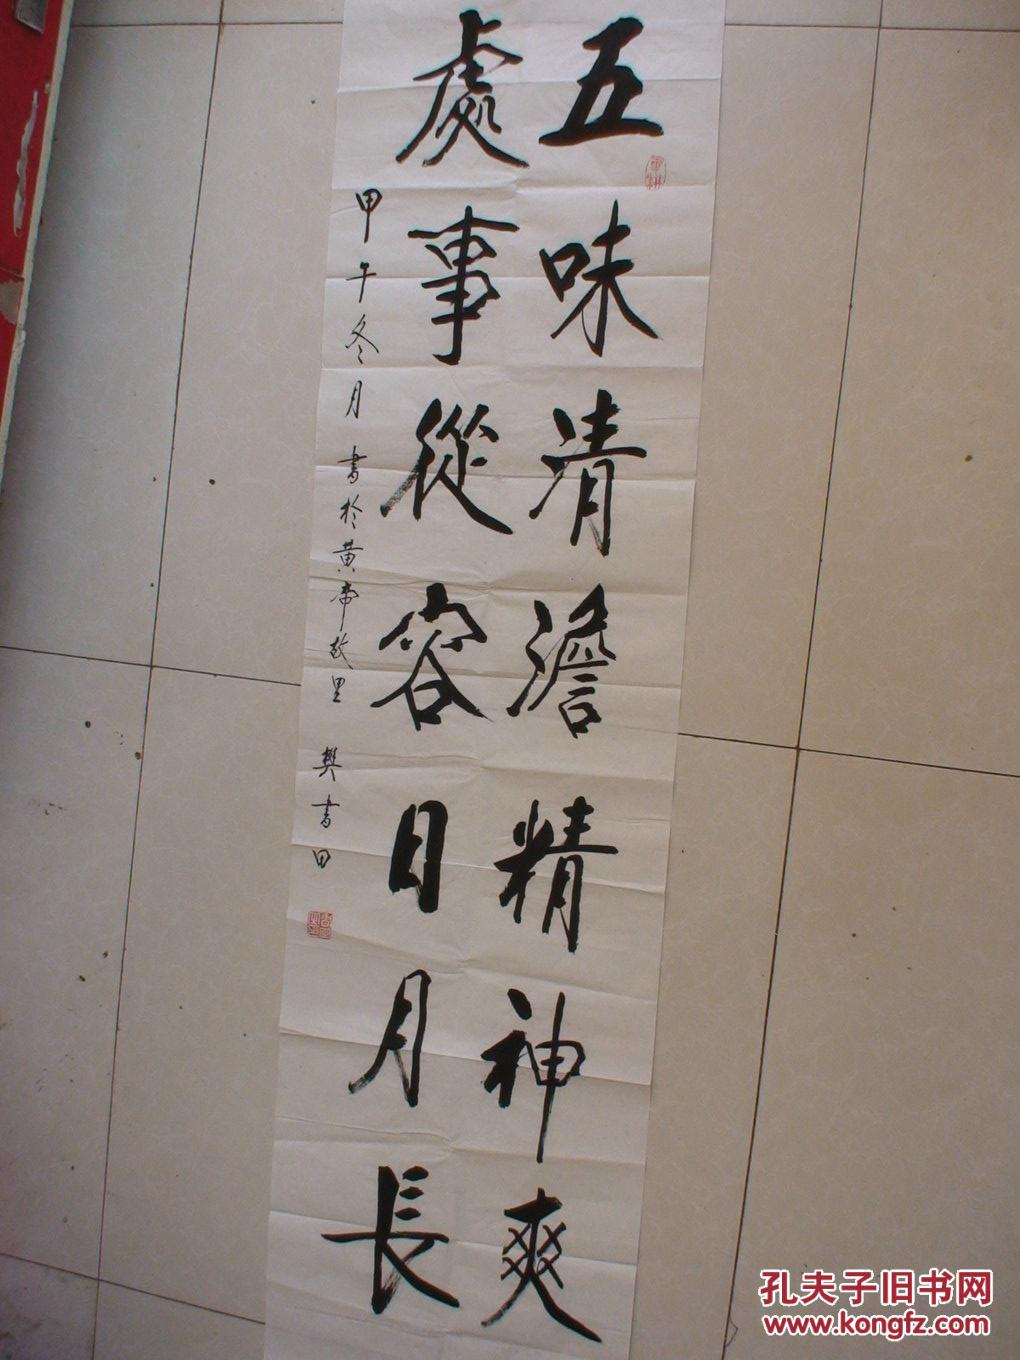 五味清澹精神爽
處事從容日月長
甲午冬月書於黄帝故里 樊書田
孔夫子旧书网
www.kongfz.com